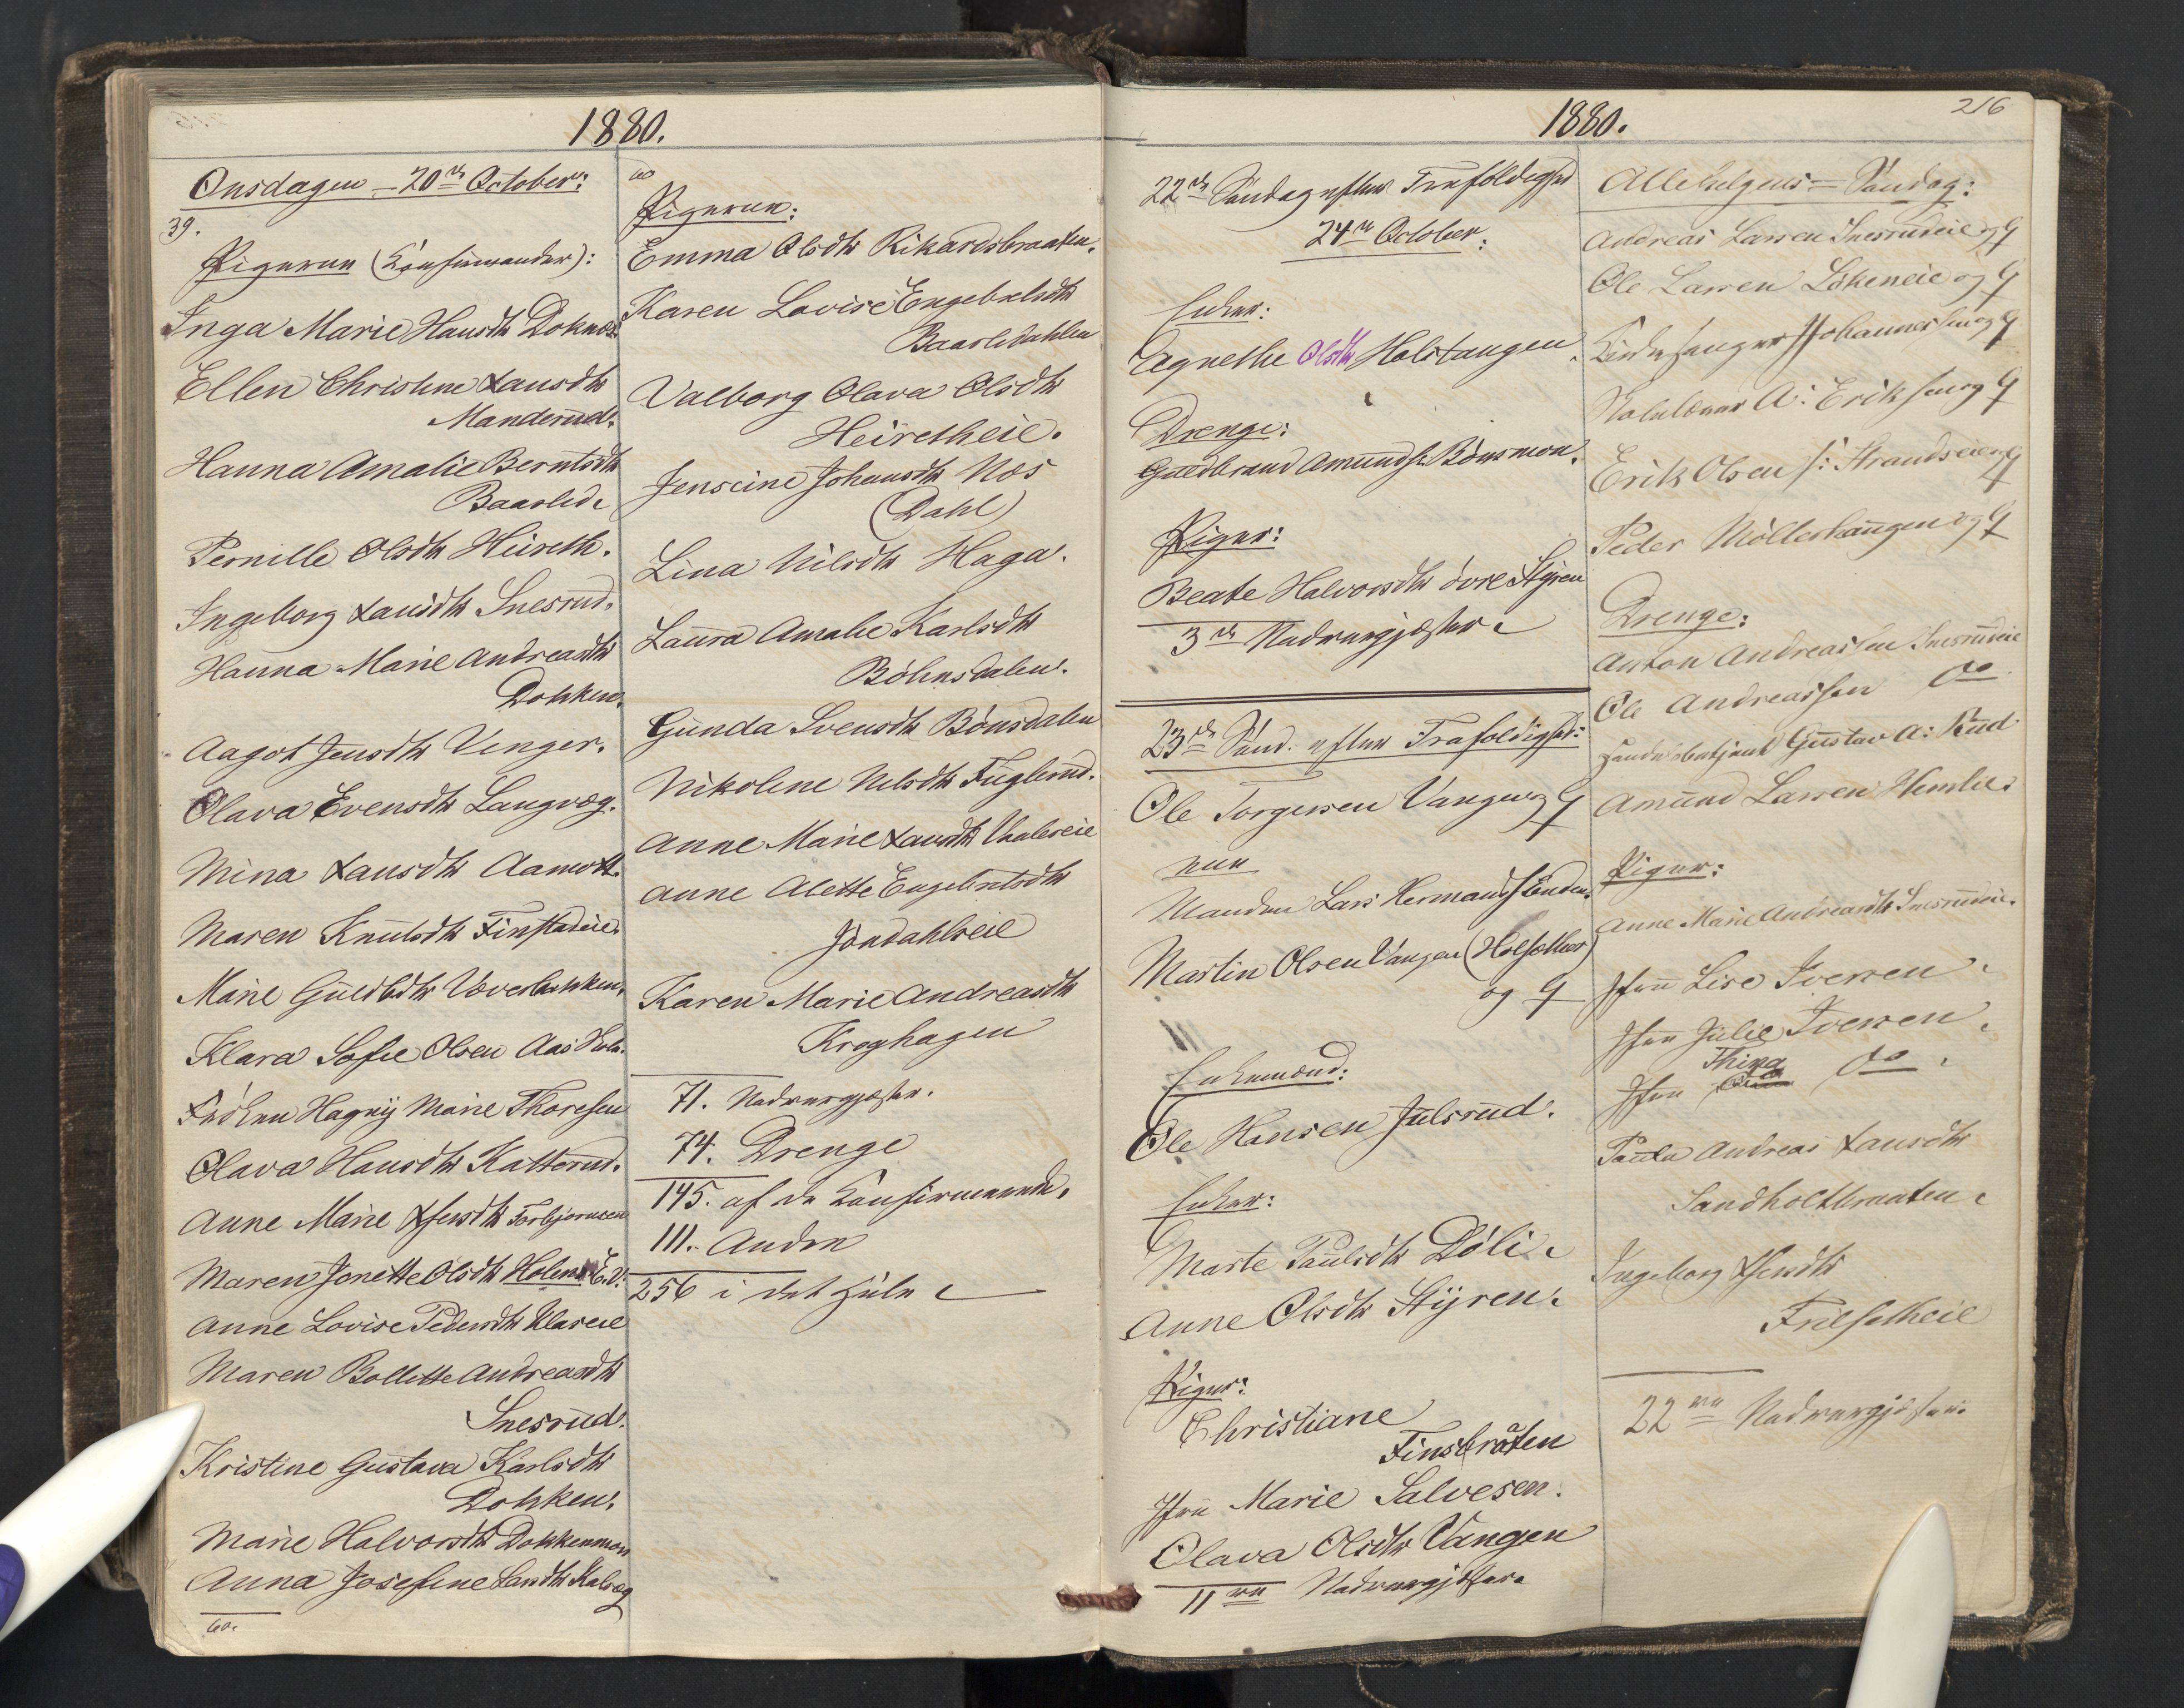 1880.
Onsdagen 20de October:
39.
Pigerne (Konfirmander):
Inga Marie Hansdtr Doknæs.
Ellen Christine Hansdtr
Manderud.
Hanna Amalie Berntsdtr
Baarlid.
Pernille Olsdtr Heireth.
Ingeborg Hansdtr Snesrud.
Hanna Marie Andreasdtr
Dokken.
Aagot Jensdtr Venger.
Olava Evensdtr Langvæg.
Mina Hansdtr Aamodt.
Maren Knudsdtr Finstadeie.
Marie Guldbdtr
Klara Sofie Olsen Aas
Frøken Hagny Marie Thoresen
Olava Hansdtr Katterud.
Anne Marie Torbjørnsen
Maren Jonette Olsdtr Holen E.V.
Anne Lovise Pedersdtr
Maren Bollette Andreasdtr
Snesrud.
Kristine Gustava Karlsdtr
Dokken.
Marie Halvorsdtr Dokkenmon
Anna Josefine Larsdtr
60.
60
Pigerne:
Emma Olsdtr Rikardsbraaten.
Karen Lovise Engebretsdtr
Baarlidahlen
Valborg Olava Olsdtr
Heiretheie.
Jenseine Johansdtr Næs
(Dahl)
Lina Nilsdtr Haga.
Laura Amalie Karlsdtr
Böhnsdalen.
Gunda Svensdtr Bönsdalen
Nikoline Nilsdtr Fuglerud.
Anne Marie Hansdtr
Anne Alette Engebretsdtr
Jöndahlseie
Karen Marie Andreasdtr
Kroghagen
71. Nadvergjæster.
74. Drenge
145. af de Konfirmerede.
111. Andre
256 i det Hele
1880.
216
22de Söndag efter Trefoldighed
24de October:
Enker:
Agnethe Olsdtr Holstangen.
Drenge:
Guldbrand Amunds. Bönsmon.
Piger:
Beate Halvorsdtr övre Styren
3de Nadvergjæster.
23de Sönd. efter Trefoldighed:
Ole Torgersen Vangen og G
Manden Lars Hermands Enden.
Martin Olsen Vangen (Holsæther)
og G
Enkemænd:
Ole Hansen Julsrud.
Enker:
Marte Paulsdtr Döli.
Anne Olsdtr Styren.
Piger:
Christiane
Finsbråten
Jfru Marie Salvesen.
Olava Olsdtr Vangen
11ve Nadvergjæster.
Allehelgens=Söndag:
Andreas Larsen Snesrudeie og G
Ole Larsen Lökeneie og G
Kirkesanger Johannessen og G
Skolelærer A. Eriksen og G
Erik Olsen Strandseie og G
Peder Möllerhaugen og G
Drenge:
Anton Andreassen Snesrudeie
Ole Andreassen do
Handelsbetjent Gustav A. Rud
Amund Larsen
Piger:
Anne Marie Andreasdtr Snesrudeie.
Jfru Lise Iversen.
Jfru Julie Iversen.
Jfru Thina do.
Paula Andreas Hansdtr
Sandholtbraaten.
Ingeborg
22ve Nadvergjæster.